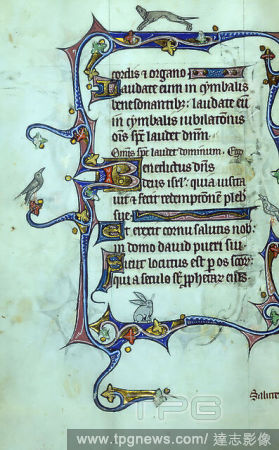 cordis ⁊ organo
Laudate eum in cymbalis
benesonantibꝰ: laudate eū
in cymbalis iubilationis
oīs sp̄s laudet dnm̄.
Omīs sp̄s laudet dominum. Ego
Benedictus dn̄s
deus isrl̄: quia uisita
uit ⁊ fecit redemptionē pleb
sue
Et erexit cornu salutis nob̄
in domo dauid pueri sui
Sicut locutus est p os sc̄or
qui a seculo s̄t ꝓphetar̄ eius
Salute
TPG
www.tpgnews.com/ 達志影像